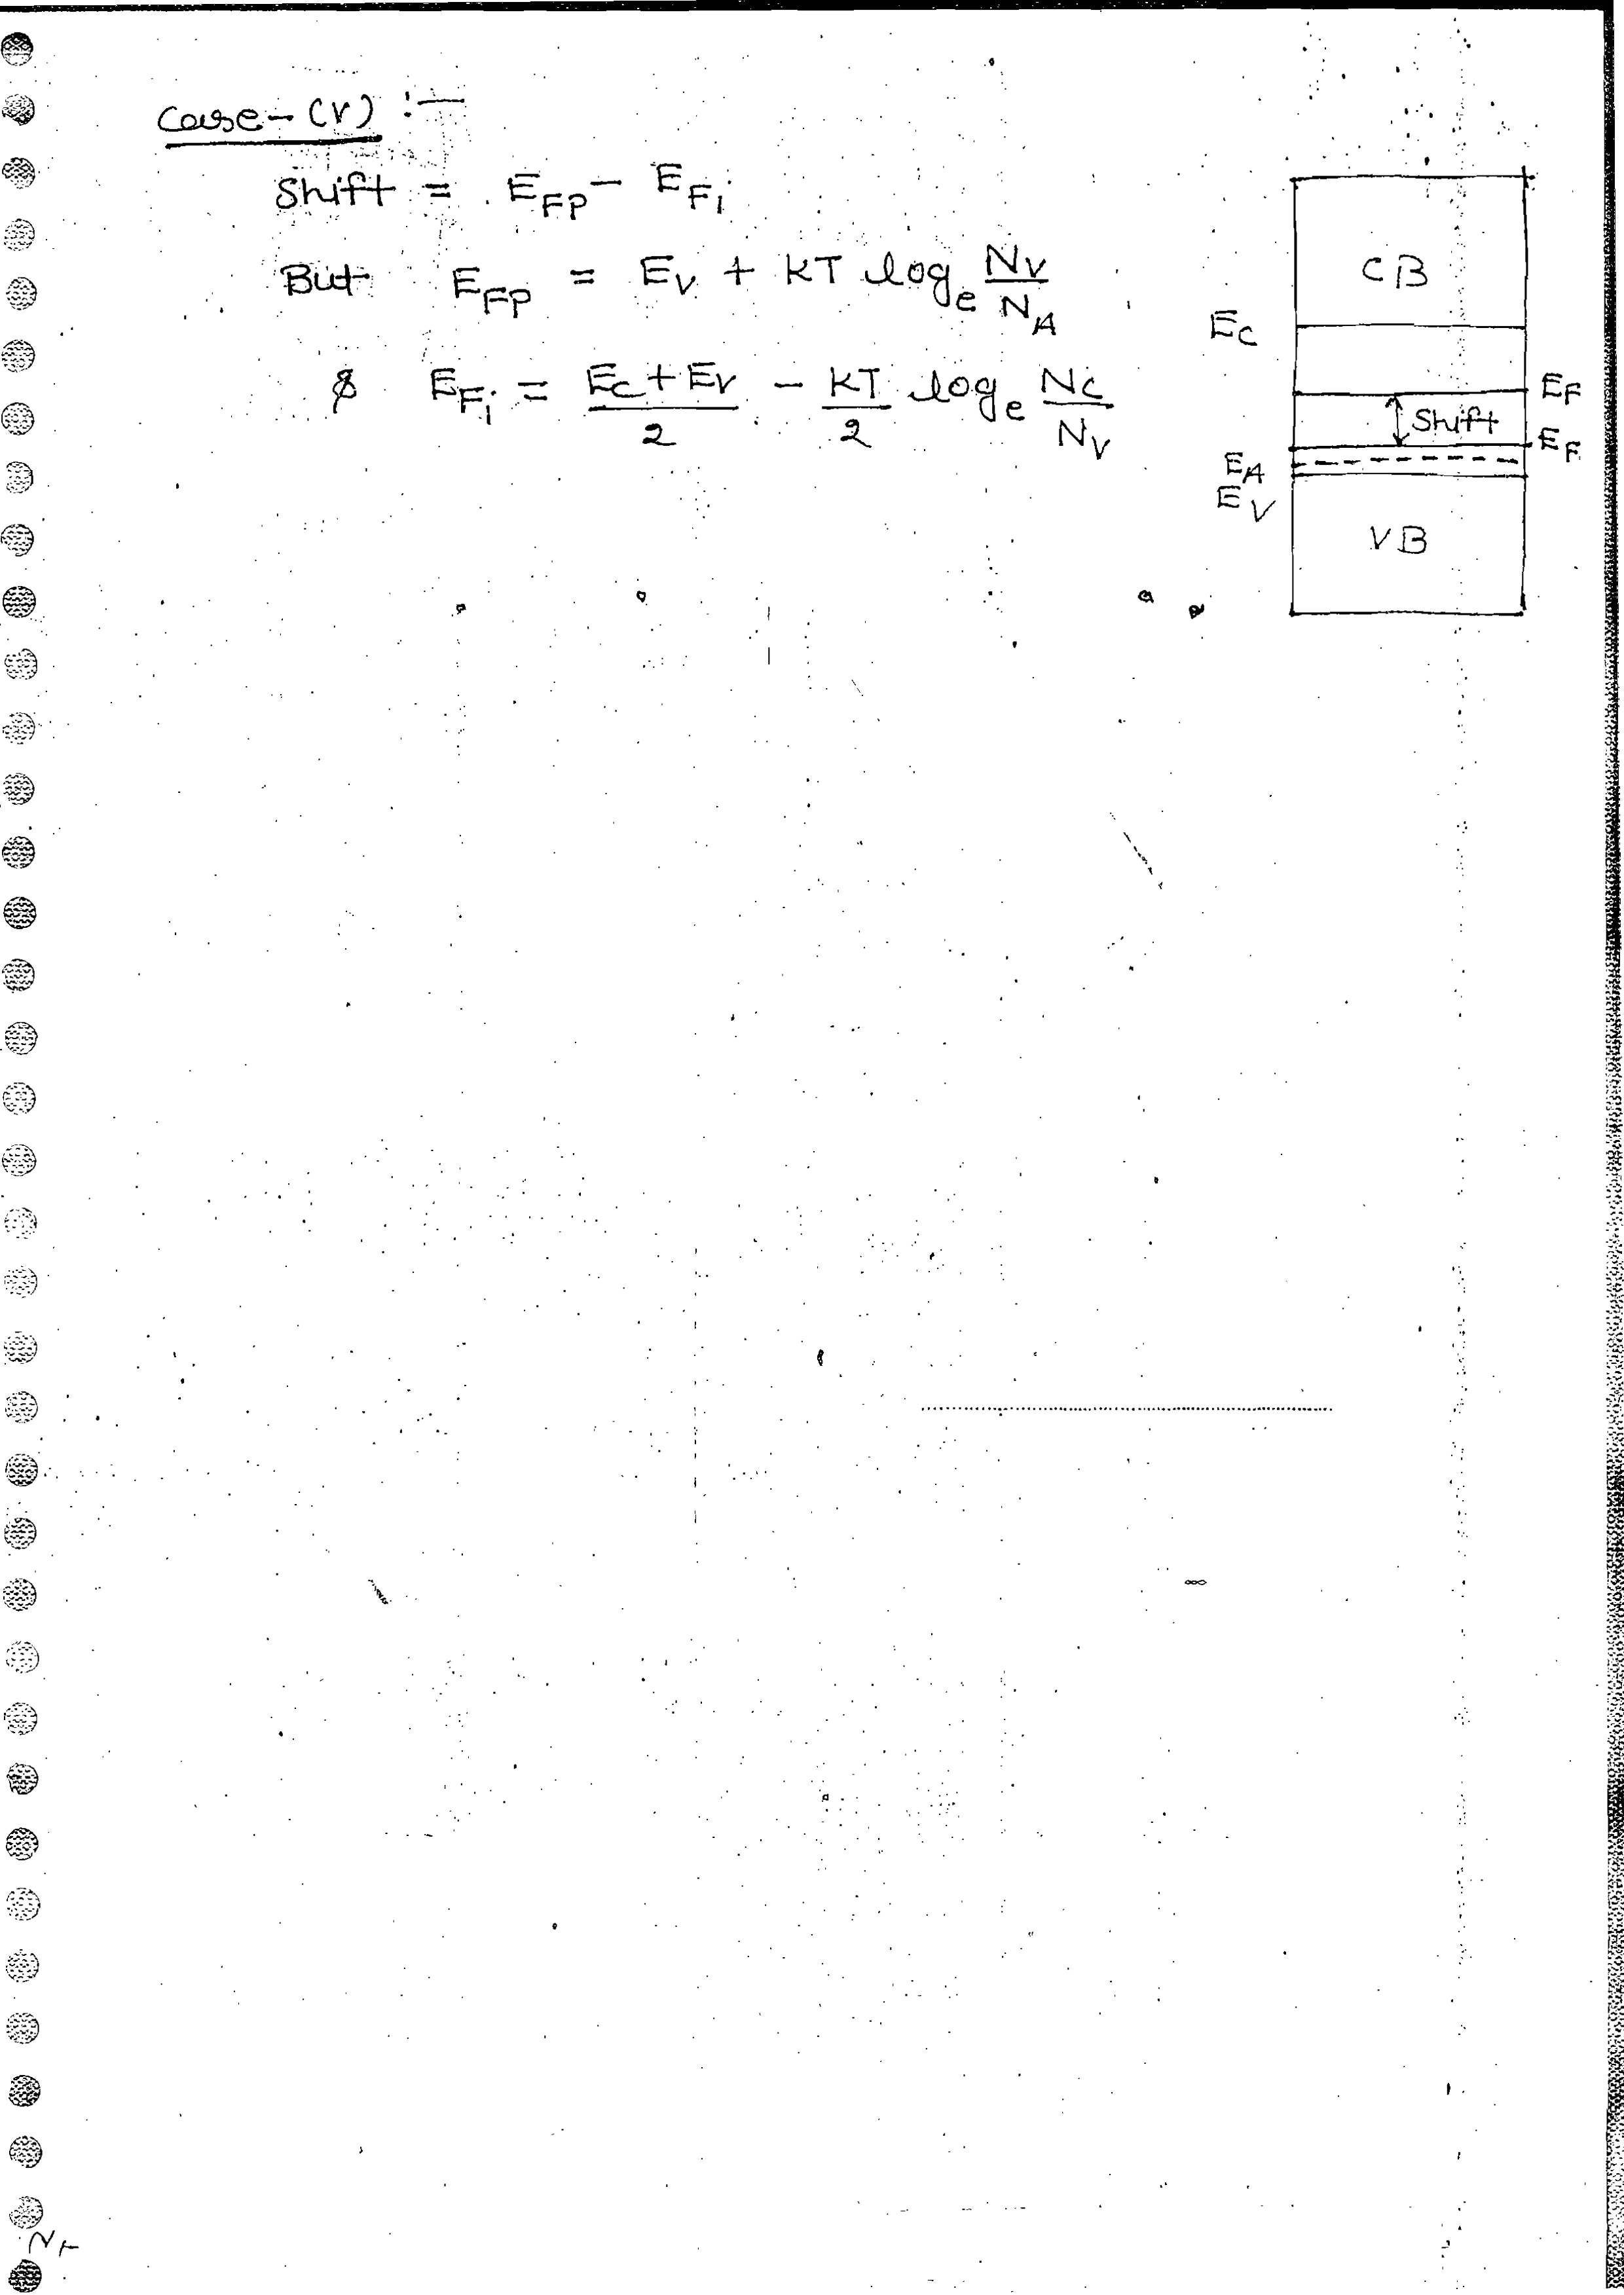 Case-(V) :-
Shift = E_FP - E_Fi
But E_FP = E_V + KT log_e N_V/N_A
& E_Fi = (E_C + E_V)/2 - KT/2 log_e N_C/N_V
CB
E_C
E_F
Shift
E_F
E_A
E_V
VB